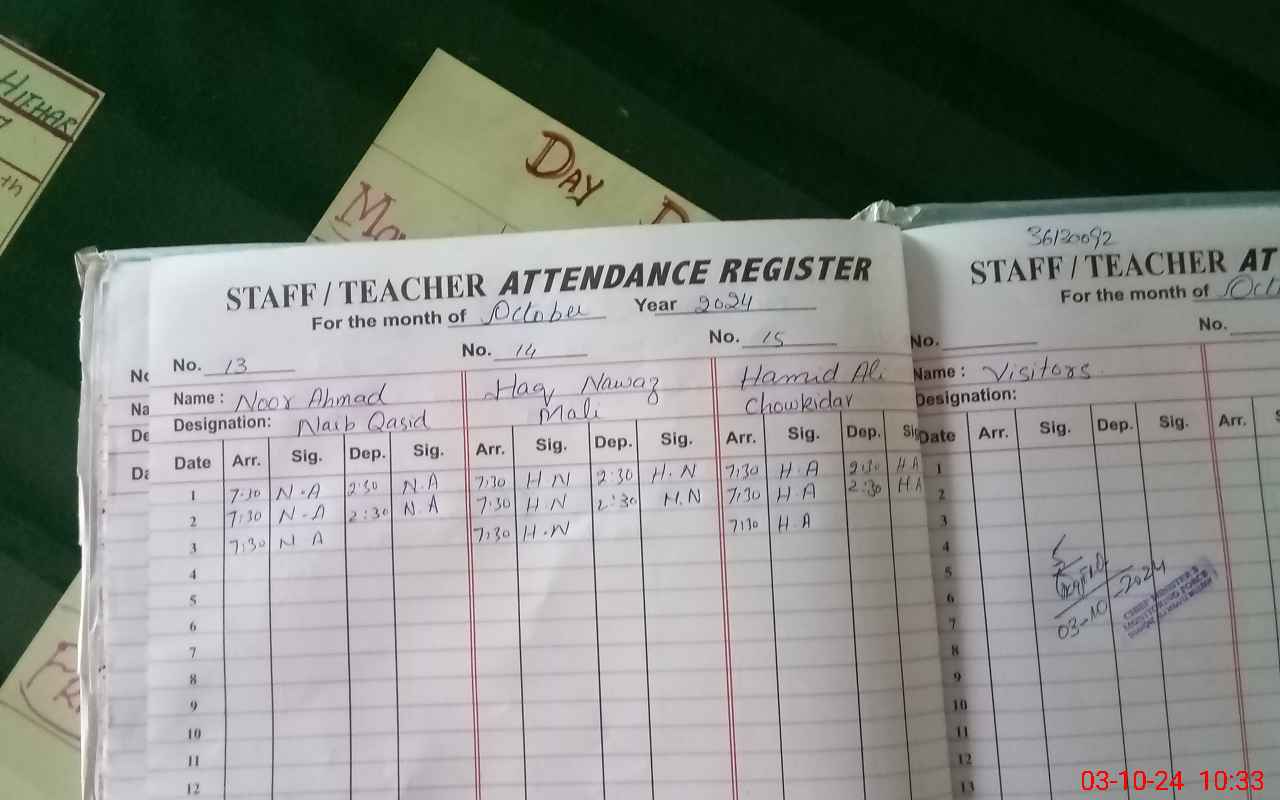 HITHAR
th
DAY
STAFF / TEACHER ATTENDANCE REGISTER
For the month of October Year 2024
No. 13 No. 14 No. 15
Name : Noor Ahmad Haq Nawaz Hamid Ali
Designation: Naib Qasid Mali Chowkidar
Date Arr. Sig. Dep. Sig. Arr. Sig. Dep. Sig. Arr. Sig. Dep. Sig
1 7:30 N.A 2:30 N.A 7:30 H.N 2:30 H.N 7:30 H.A 2:30 H.A
2 7:30 N.A 2:30 N.A 7:30 H.N 2:30 H.N 7:30 H.A 2:30 H.A
3 7:30 N.A 7:30 H.N 7:30 H.A
4
5
6
7
8
9
10
11
12
36130092
STAFF / TEACHER AT
For the month of Octo
No. No.
Name : Visitors
Designation:
Date Arr. Sig. Dep. Sig. Arr. S
1
2
3
4
5
6
7
8
9
10
11
12
13
03-10-2024
CHIEF MINISTER'S
MONITORING FORCE
03-10-24 10:33